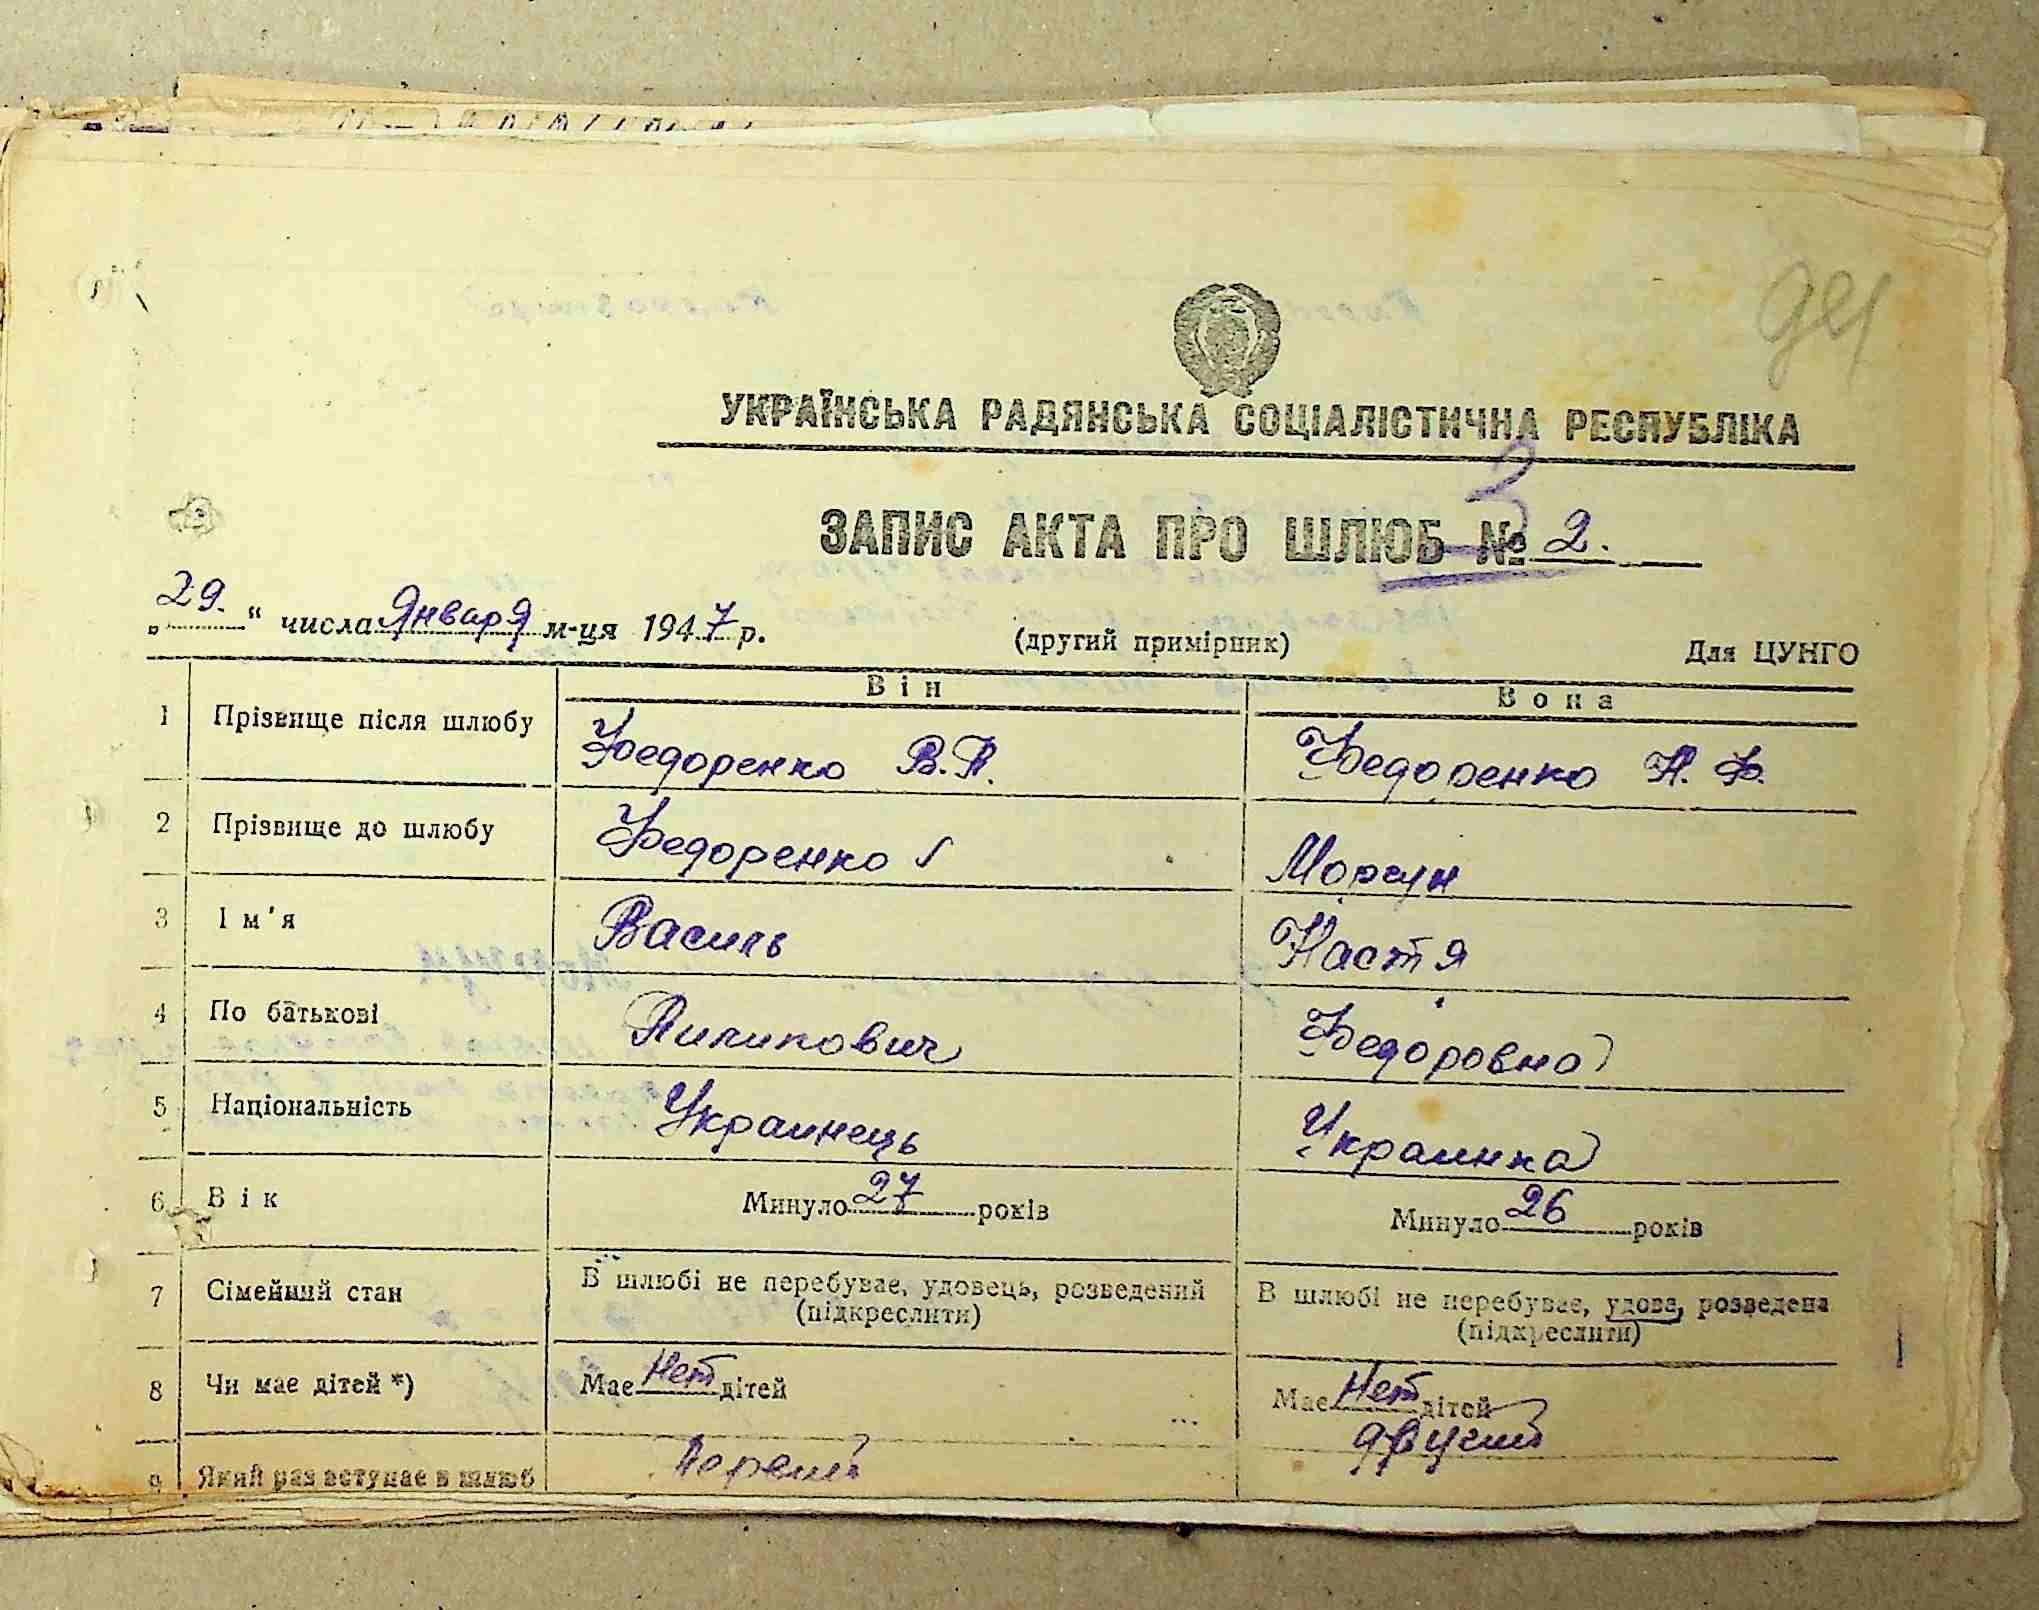 УКРАЇНСЬКА РАДЯНСЬКА СОЦІАЛІСТИЧНА РЕСПУБЛІКА
3
ЗАПИС АКТА ПРО ШЛЮБ № 2.
„29.“ числа Января м-ця 1947 р. (другий примірник) Для ЦУНГО
Він Вона
1 Прізвище після шлюбу Федоренко В.П. Федоренко Н. Ф.
2 Прізвище до шлюбу Федоренко Моргун
3 Ім'я Василь Настя
4 По батькові Пилипович Федоровна
5 Національність Украинець Украинка
6 Вік Минуло 27 років Минуло 26 років
7 Сімейний стан В шлюбі не перебуває, удовець, розведений В шлюбі не перебуває, удова, розведена
(підкреслити) (підкреслити)
8 Чи має дітей *) Має Нет дітей Має Нет дітей
9 Який раз вступає в шлюб Первий другий